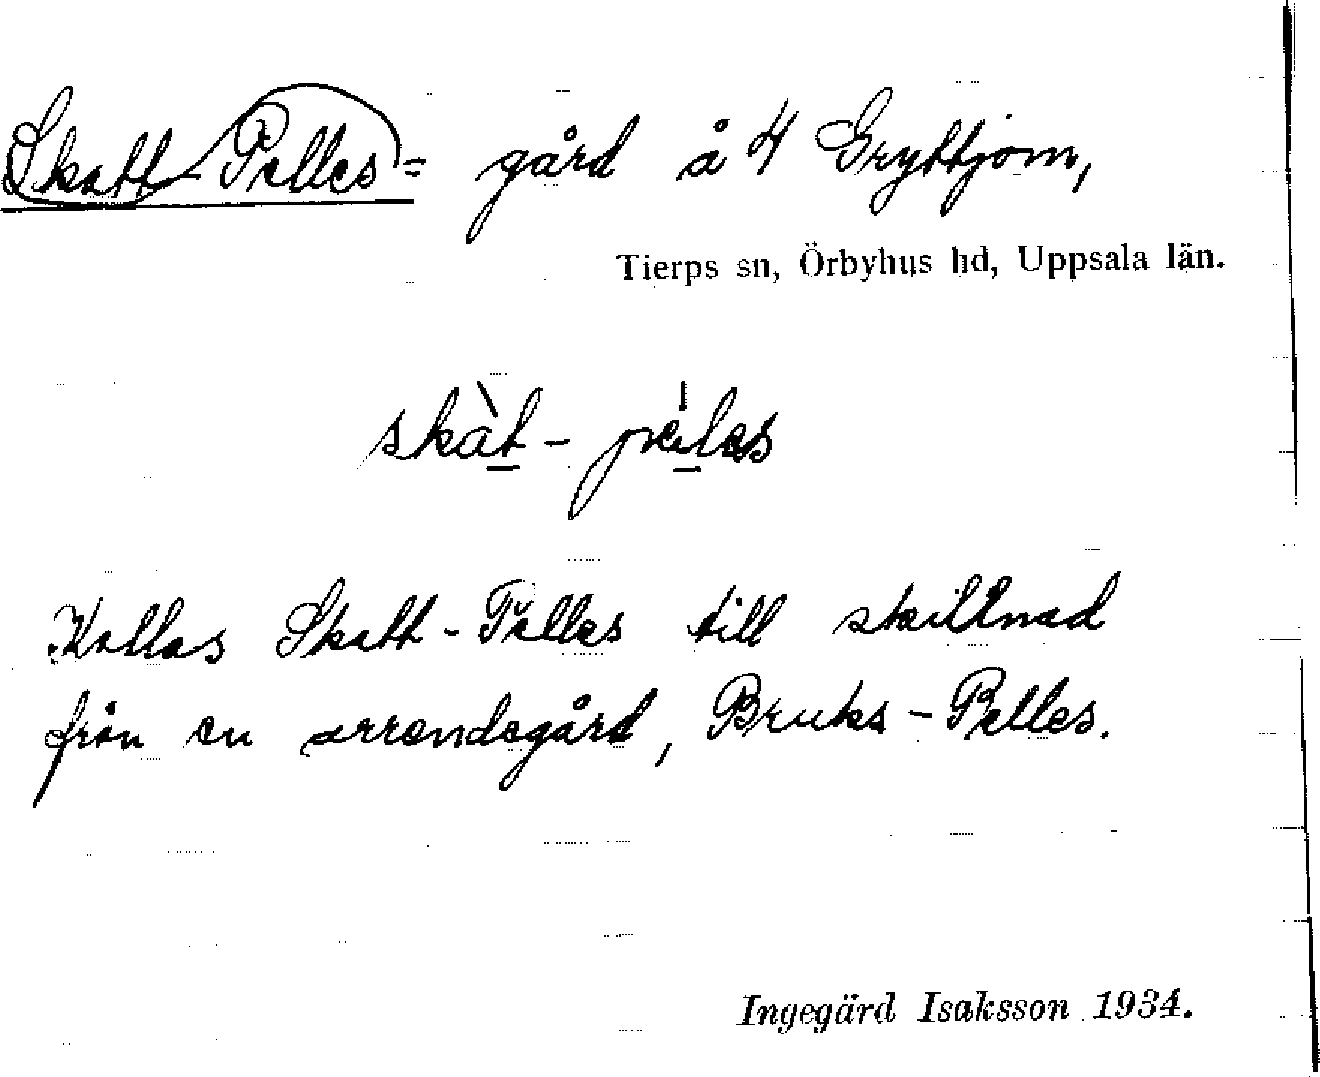 Skatt-Pelles= gård å 4 Gryttjom,
Tierps sn, Örbyhus hd, Uppsala län.
skàt - péləs
Kallas Skatt-Pelles till skillnad
från en arrendegård, Bruks-Pelles.
Ingegärd Isaksson 1934.